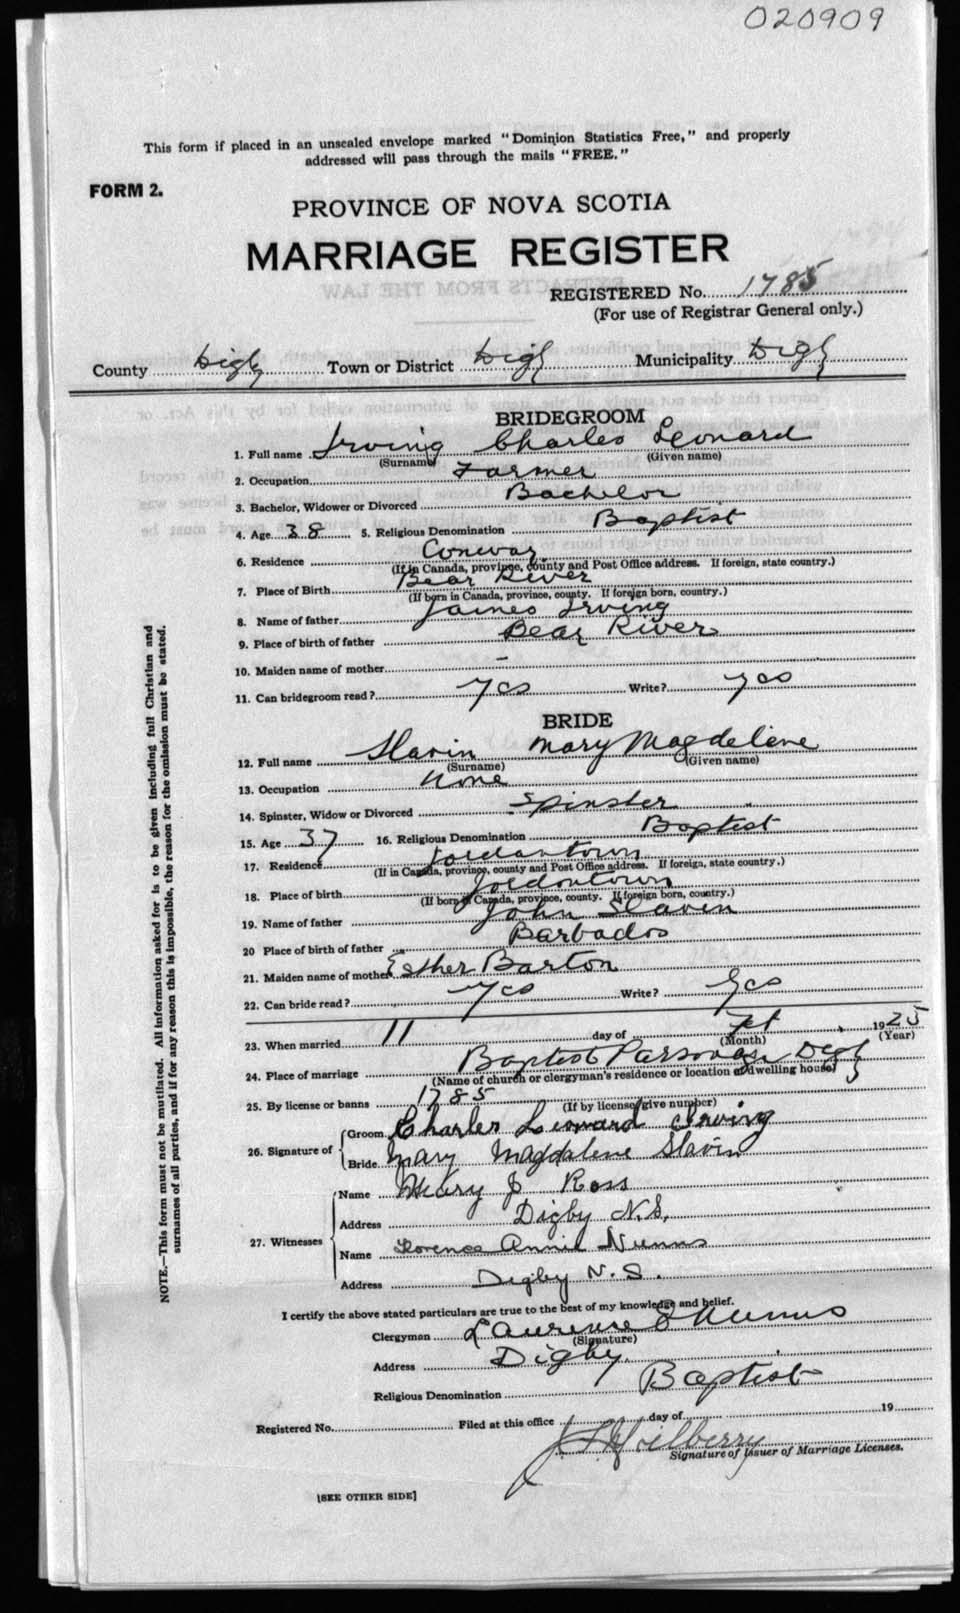 020909
This form if placed in an unsealed envelope marked "Dominion Statistics Free," and properly
addressed will pass through the mails "FREE."
FORM 2.
PROVINCE OF NOVA SCOTIA
MARRIAGE REGISTER
REGISTERED No. 1785
(For use of Registrar General only.)
County Digby Town or District Digby Municipality Digby
BRIDEGROOM
1. Full name Irving Charles Leonard
(Surname) (Given name)
2. Occupation Farmer
3. Bachelor, Widower or Divorced Bachelor
4. Age 38 5. Religious Denomination Baptist
6. Residence Conway
(If in Canada, province, county and Post Office address. If foreign, state country.)
7. Place of Birth Bear River
(If born in Canada, province, county. If foreign born, country.)
8. Name of father James Irving
9. Place of birth of father Bear River
10. Maiden name of mother -
11. Can bridegroom read? yes Write? yes
BRIDE
12. Full name Slavin Mary Magdelene
(Surname) (Given name)
13. Occupation None
14. Spinster, Widow or Divorced Spinster
15. Age 37 16. Religious Denomination Baptist
17. Residence Jordantown
(If in Canada, province, county and Post Office address. If foreign, state country.)
18. Place of birth Jordantown
(If born in Canada, province, county. If foreign born, country.)
19. Name of father John Slaven
20 Place of birth of father Barbados
21. Maiden name of mother Esther Barton
22. Can bride read? yes Write? yes
23. When married 11 day of 1925
(Month) (Year)
24. Place of marriage Baptist Parsonage Digby
(Name of church or clergyman's residence or location of dwelling house)
25. By license or banns 1785
(If by license give number)
26. Signature of
Groom Charles Leonard Irving
Bride Mary Magdalene Slavin
27. Witnesses
Name Mary J Ross
Address Digby N.S.
Name Florence Annie Nunns
Address Digby N.S.
I certify the above stated particulars are true to the best of my knowledge and belief.
Clergyman Laurense E Nunns
(Signature)
Address Digby.
Religious Denomination Baptist
Registered No. Filed at this office day of 19
Signature of Issuer of Marriage Licenses.
[SEE OTHER SIDE]
NOTE.—This form must not be mutilated. All information asked for is to be given including full Christian and
surnames of all parties, and if for any reason this is impossible, the reason for the omission must be stated.